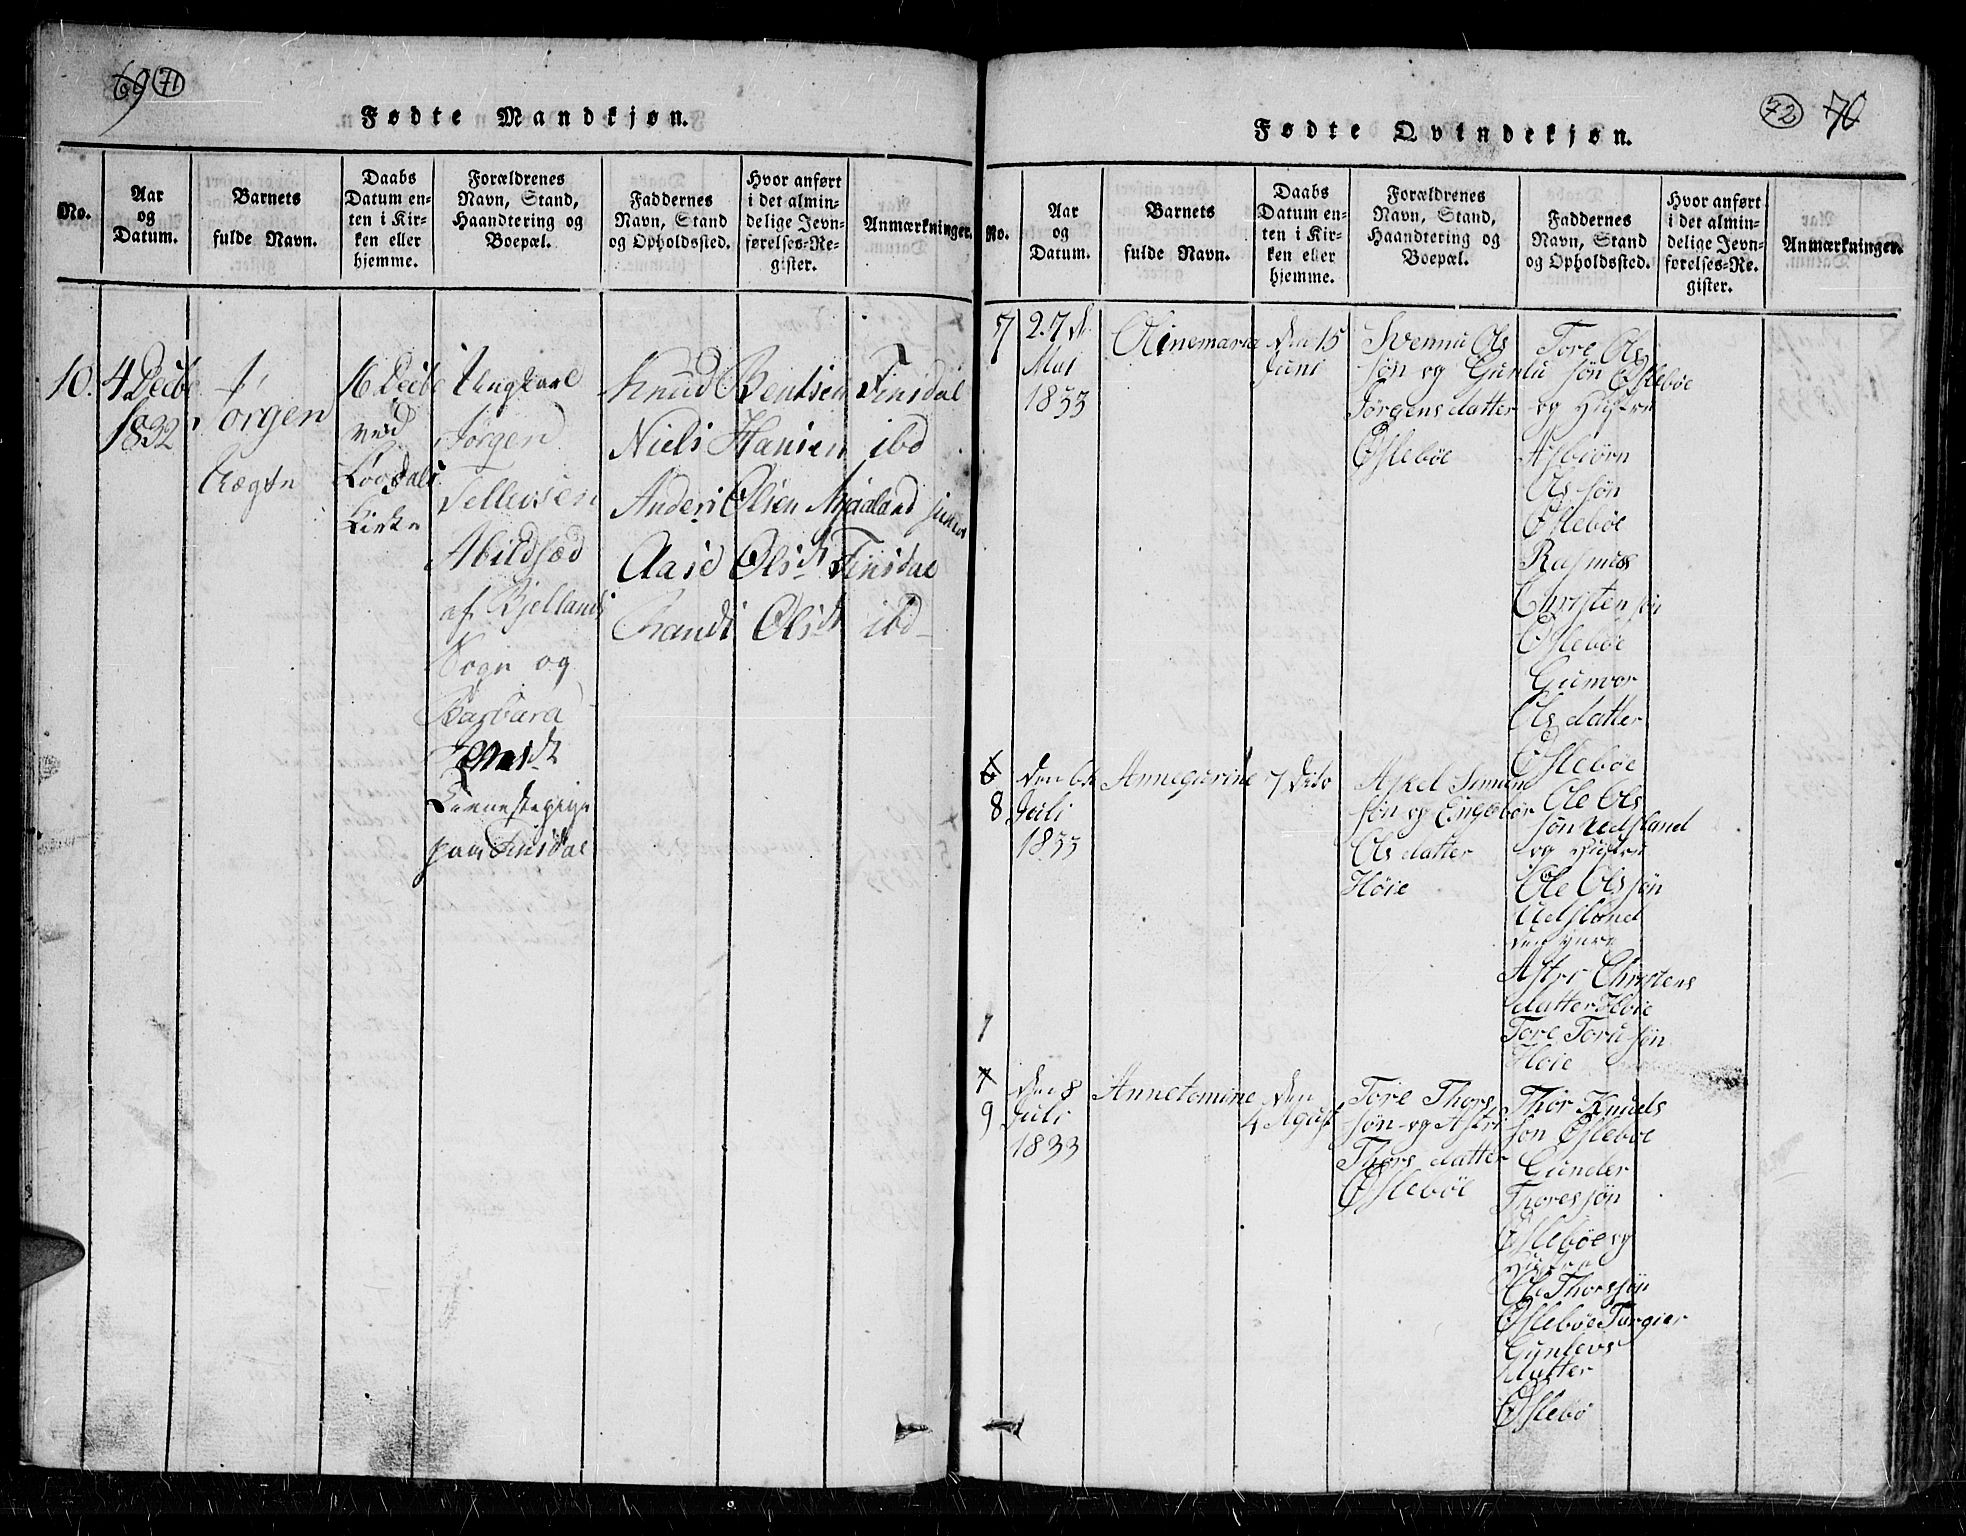 69 71
Fødte Mandkjøn.
No.
Aar
og
Datum.
Barnets
fulde Navn.
Daabs
Datum en-
ten i Kir-
ken eller
hjemme.
Forældrenes
Navn, Stand,
Haandtering og
Boepæl.
Faddernes
Navn, Stand
og Opholdssted.
Hvor anført
i det almin-
delige Jevn-
førelses-Re-
gister.
Anmærkninger.
10.
4 Decbr
1832
Jørgen
Uægte
16 Decbr
ved
Løvdals
Kirke
Ungkarl
Jørgen
Tellevsen
Abildsæd
af Bjellands
Sogn og
Barbara
Tienestepige
paa Finsdal
Knud Bentsen Finsdal
Niels Hansen ibd
Anders Olsen Mjaaland
Aase Olsdt Finsdal
Randi Olsdt ibd
72 70
Fødte Qvindekjøn.
No.
Aar
og
Datum.
Barnets
fulde Navn.
Daabs
Datum en-
ten i Kir-
ken eller
hjemme.
Forældrenes
Navn, Stand,
Haandtering og
Boepæl.
Faddernes
Navn, Stand
og Opholdssted.
Hvor anført
i det almin-
delige Jevn-
førelses-Re-
gister.
Anmærkninger.
7
27 d
Mai
1833
Olinemaria
den 15
Juni
Svennu Ols
søn og Gunlu
Jørgensdatter
Øslebøe
Tore Ols
søn Øslebøe
og Hustru
Asbiørn
Olssøn
Øslebøe
Rasmus
Christensøn
Øslebøe
Gunvor
Olsdatter
Øslebøe
6
8
den 6te
Juli
1833
Annegurine
7 Dito
Askel
søn og Engebor
Olsdatter
Høie
Ole Ols
søn Udsland
og Hustru
Ole Olssøn
Udsland
den yngre
Astri Christens
datter Høie
Tore Torussøn
Høie
7
7
9
den 8
Juli
1833
Annetomine
den
4 Agust
Tore Thors
søn og Astri
Thorsdatter
Øslebøe
Thor Knuds
søn Øslebøe
Gunder
Thoressøn
Øslebøe og
Hustru
Ole Thorssøn
Øslebøe Torgier
Gunlevs
datter
Øslebø